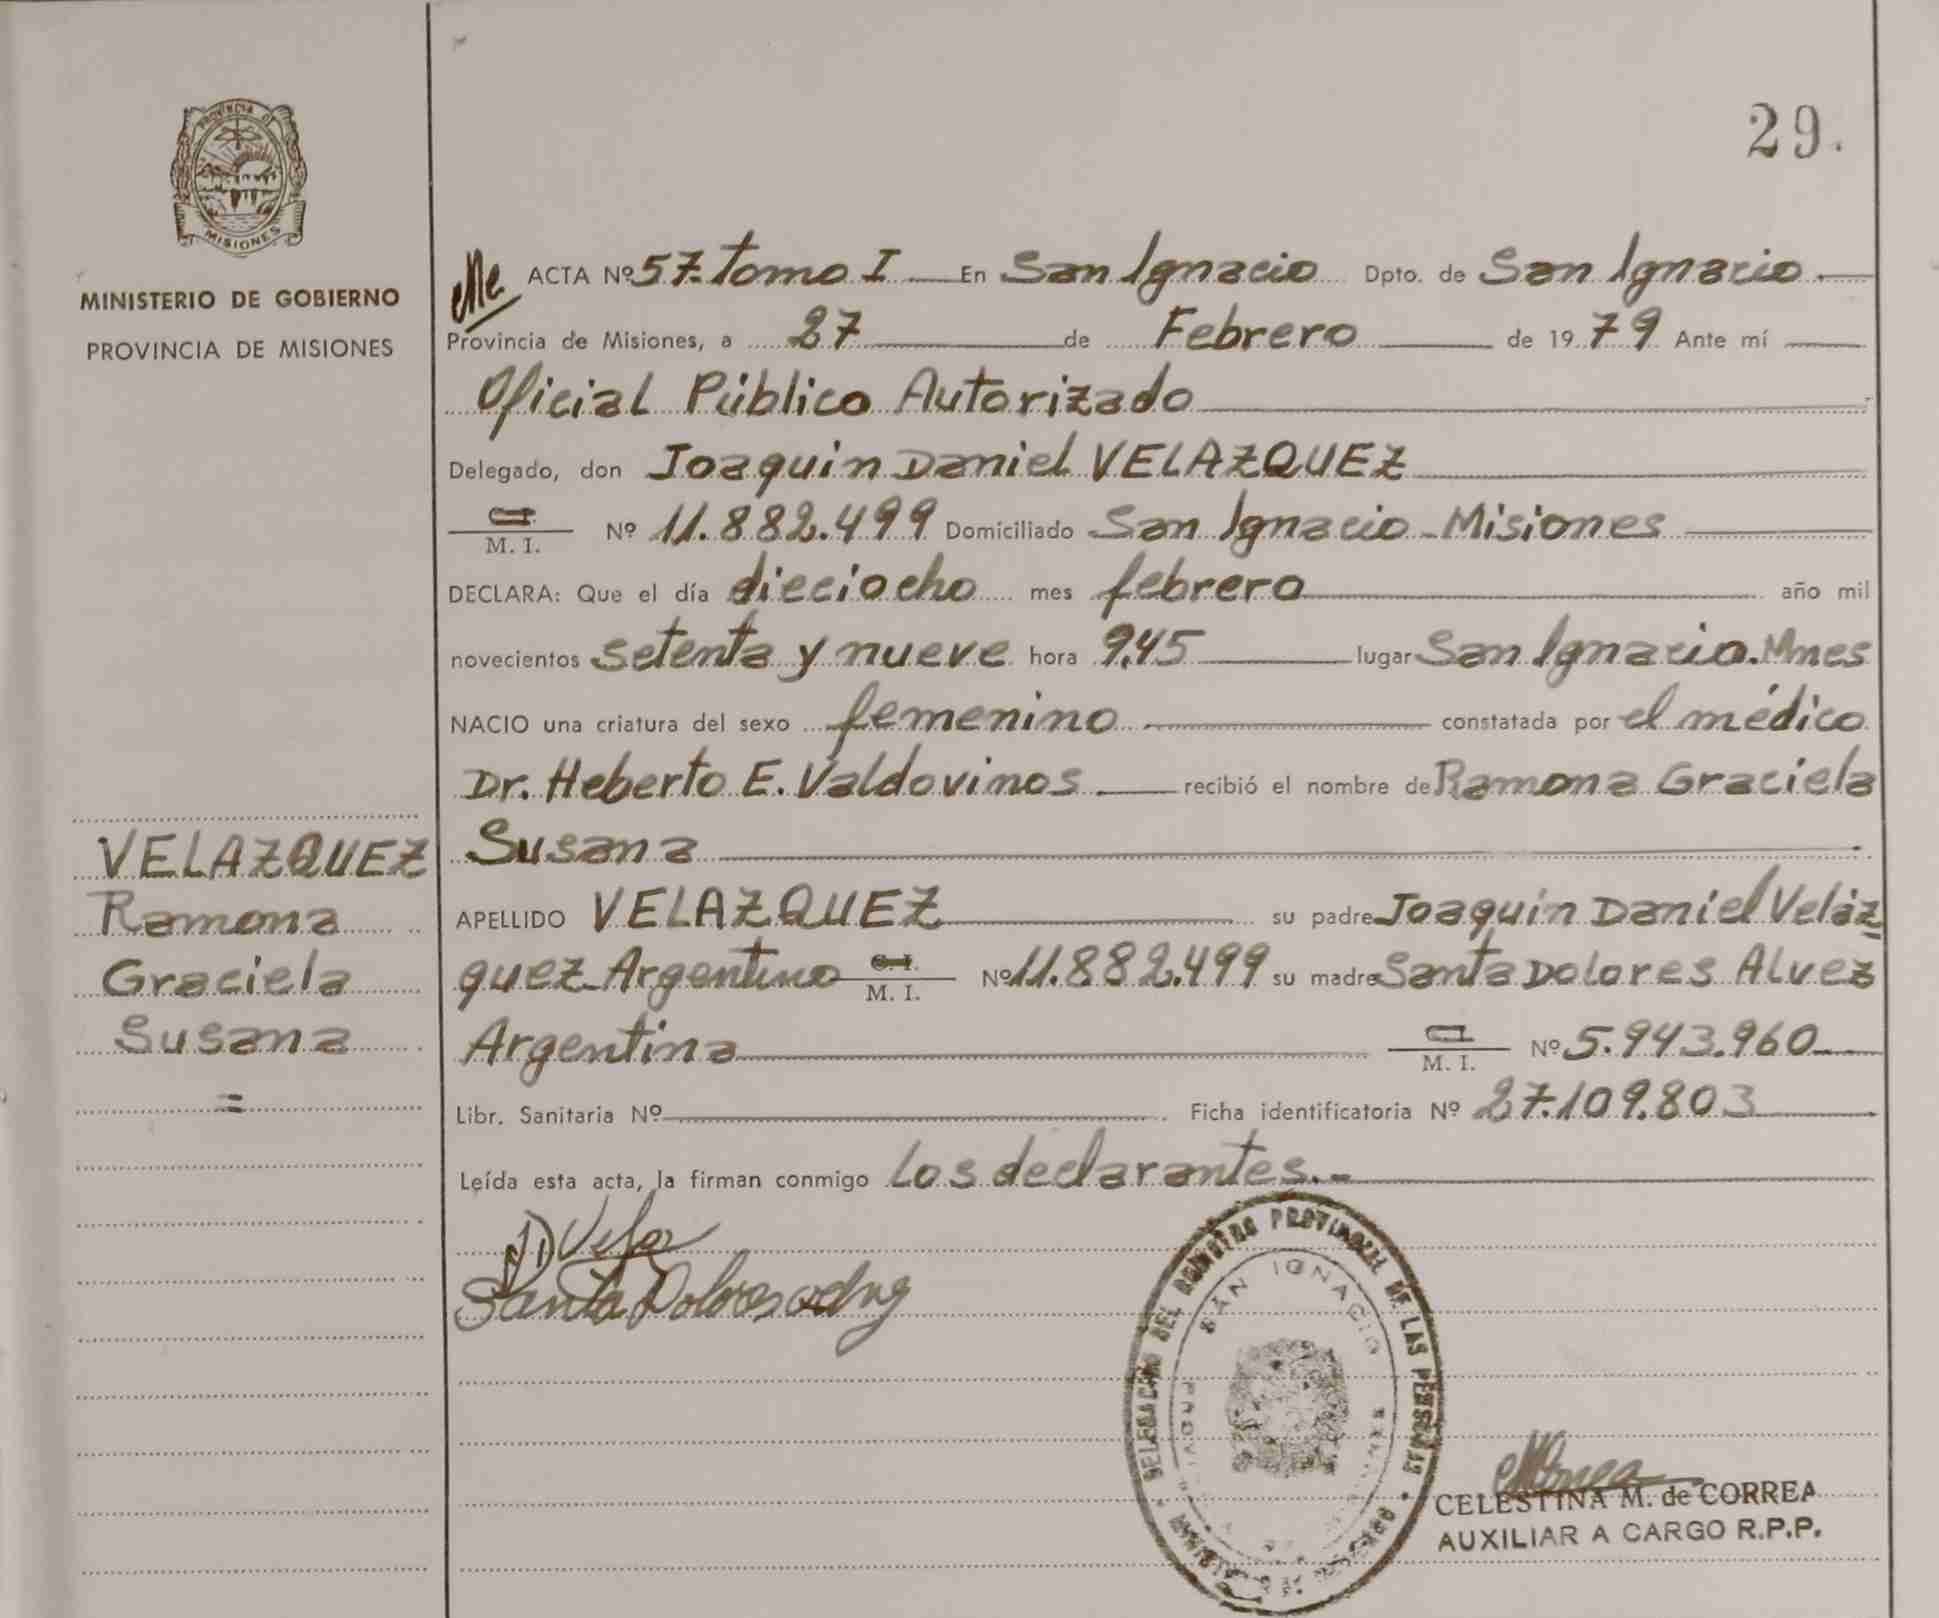 PROVINCIA DE
MISIONES
MINISTERIO DE GOBIERNO
PROVINCIA DE MISIONES
VELAZQUEZ
Ramona
Graciela
Susana
=
29.
ACTA Nº 57. Tomo I En San Ignacio Dpto. de San Ignacio.
Provincia de Misiones, a 27 de Febrero de 1979 Ante mí
Oficial Público Autorizado
Delegado, don Joaquin Daniel VELAZQUEZ
C.I.
M. I. Nº 11.882.499 Domiciliado San Ignacio - Misiones
DECLARA: Que el día dieciocho mes febrero año mil
novecientos setenta y nueve hora 9.45 lugar San Ignacio. Mnes
NACIO una criatura del sexo femenino constatada por el médico
Dr. Heberto E. Valdovinos recibió el nombre de Ramona Graciela
Susana
APELLIDO VELAZQUEZ su padre Joaquin Daniel Veláz
quez - Argentino C. I. M. I. Nº 11.882.499 su madre Santa Dolores Alvez
Argentina M. I. Nº 5.943.960
Libr. Sanitaria Nº Ficha identificatoria Nº 27.109.803
Leída esta acta, la firman conmigo los declarantes.-
Santa Dolores
DELEGACION DEL REGISTRO PROVINCIAL DE LAS PERSONAS
SAN IGNACIO
CELESTINA M. de CORREA
AUXILIAR A CARGO R.P.P.